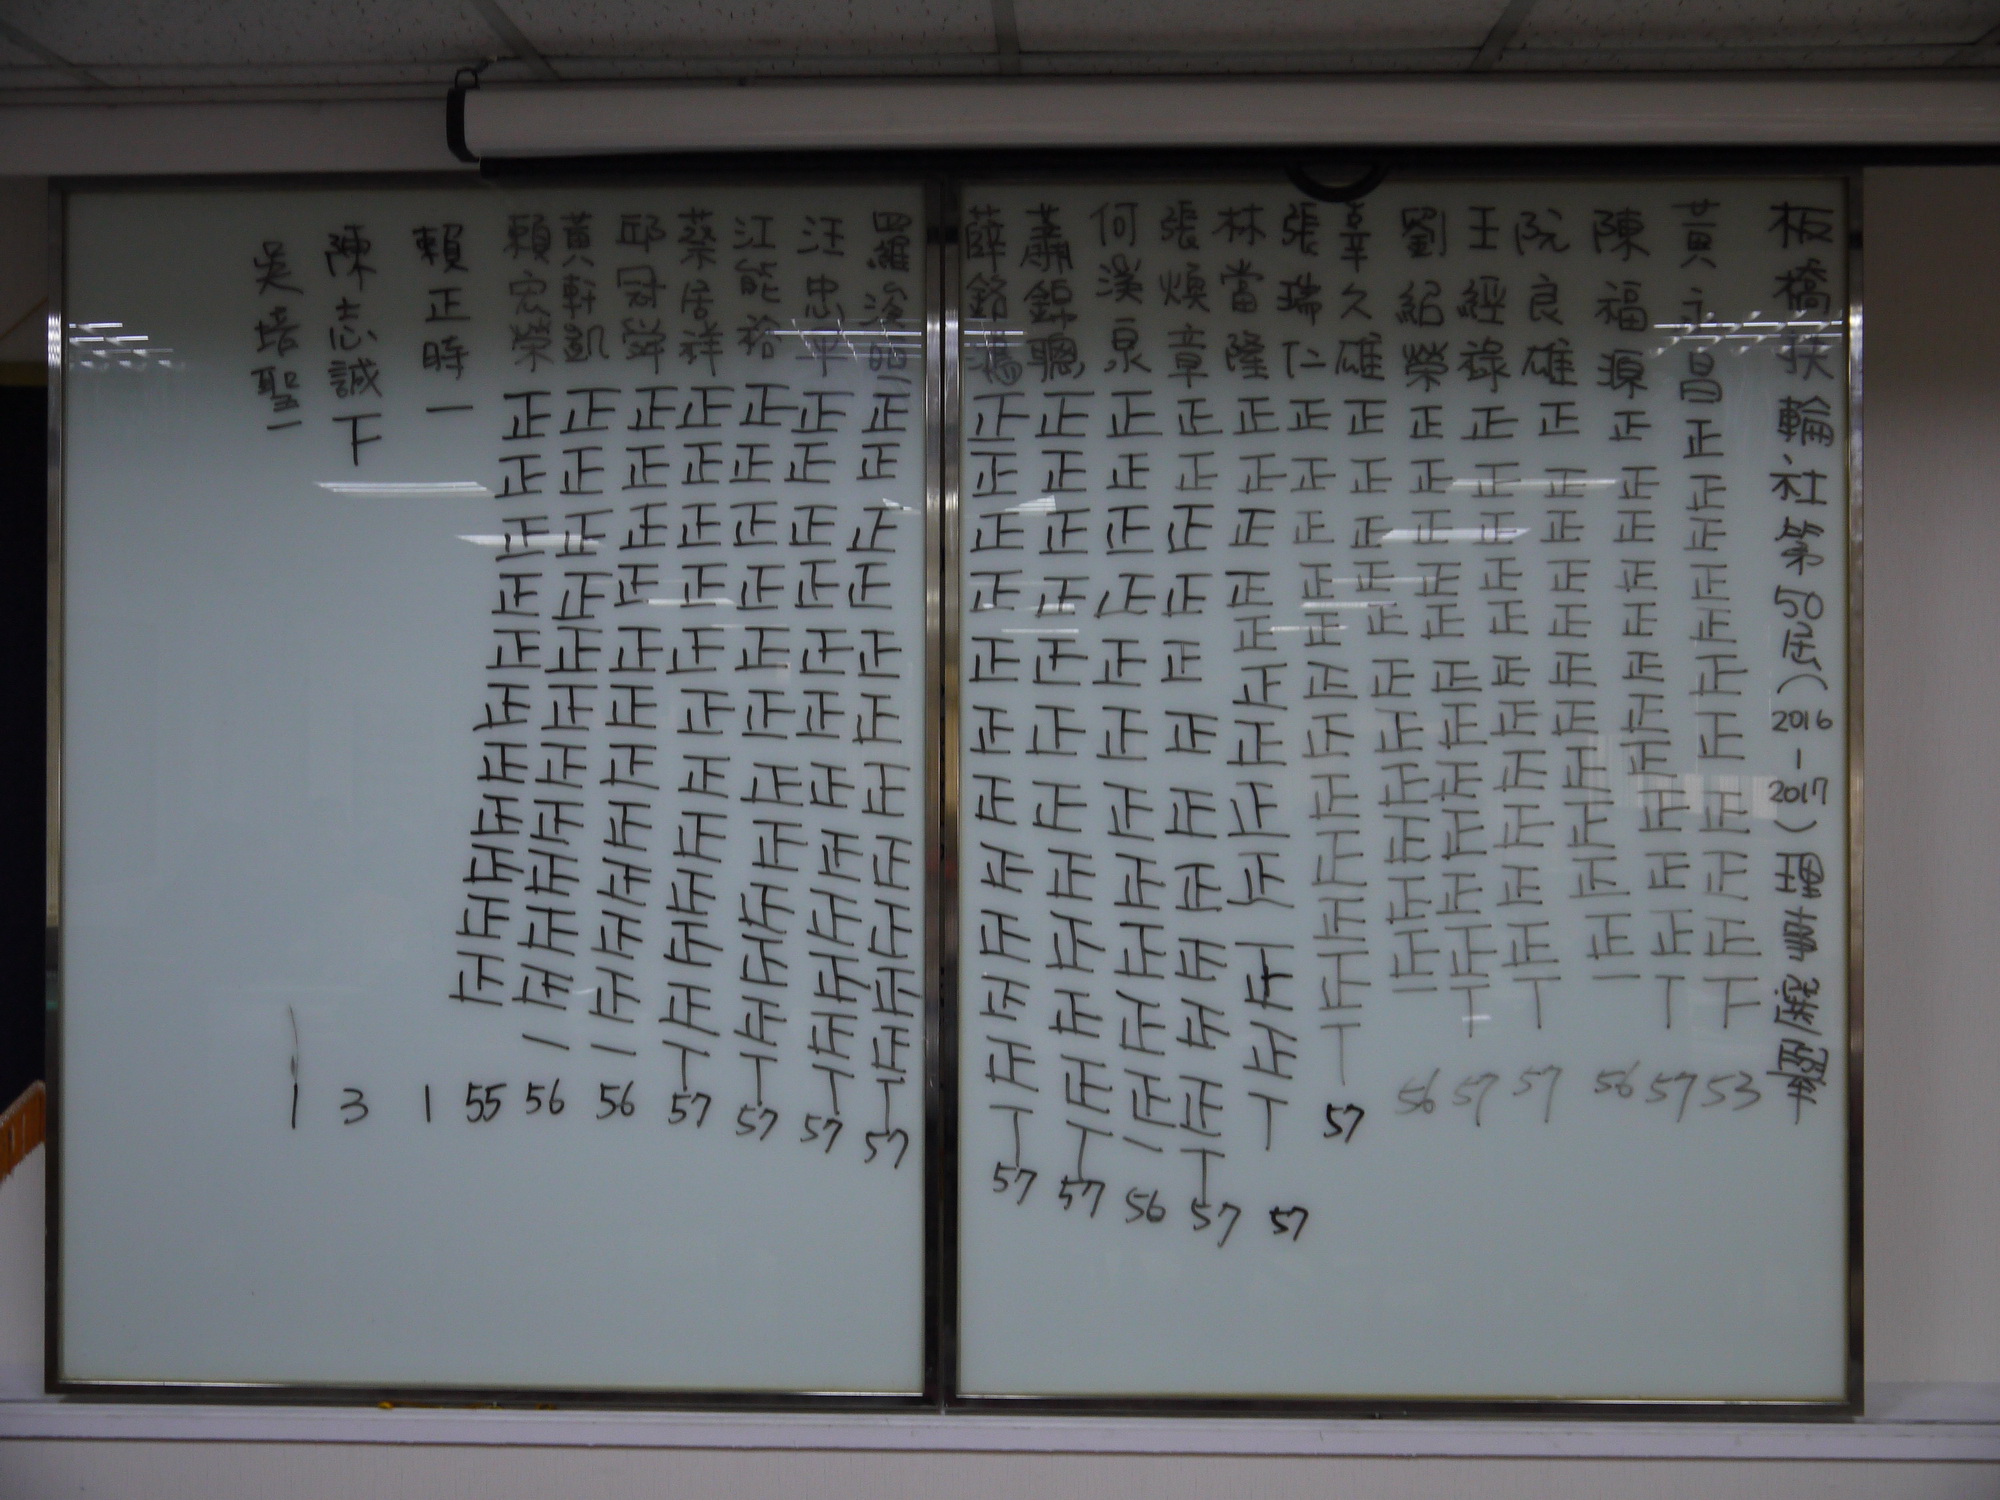 板橋扶輪社第50屆(2016-2017)理事
黃永昌正正正正正正正正正正下53
陳福源正正正正正正正正正正正丅57
阮良雄正正正正正正正正正正正一56
王經祿正正正正正正正正正正正丅57
劉紹榮正正正正正正正正正正正丅57
辜久雄正正正正正正正正正正正一56
張瑞仁正正正正正正正正正正正丅57
林當隆正正正正正正正正正正正丅57
張煥章正正正正正正正正正正正丅57
何漢泉正正正正正正正正正正正一56
蕭錦聰正正正正正正正正正正正丅57
薛銘鴻正正正正正正正正正正正丅57
羅正正正正正正正正正正正丅57
汪忠平正正正正正正正正正正正丅57
江能裕正正正正正正正正正正正丅57
蔡居祥正正正正正正正正正正正丅57
邱冠舜正正正正正正正正正正正一56
黃軒凱正正正正正正正正正正正一56
賴宏榮正正正正正正正正正正正55
賴正時一1
陳志誠下3
吳培聖一1